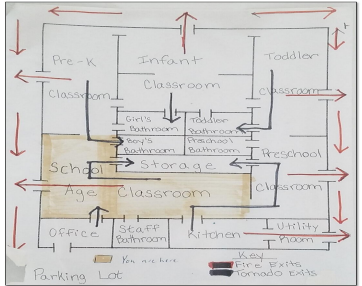 Pre-K
Classroom
Infant
Classroom
Toddler
Classroom
Girl's
Bathroom
Toddler
Bathroom
Boy's
Bathroom
Preschool
Bathroom
Storage
Preschool
Classroom
School
Age Classroom
Office
Staff
Bathroom
Kitchen
Utility
Room
You are here
Key
Fire Exits
Tornado Exits
Parking Lot